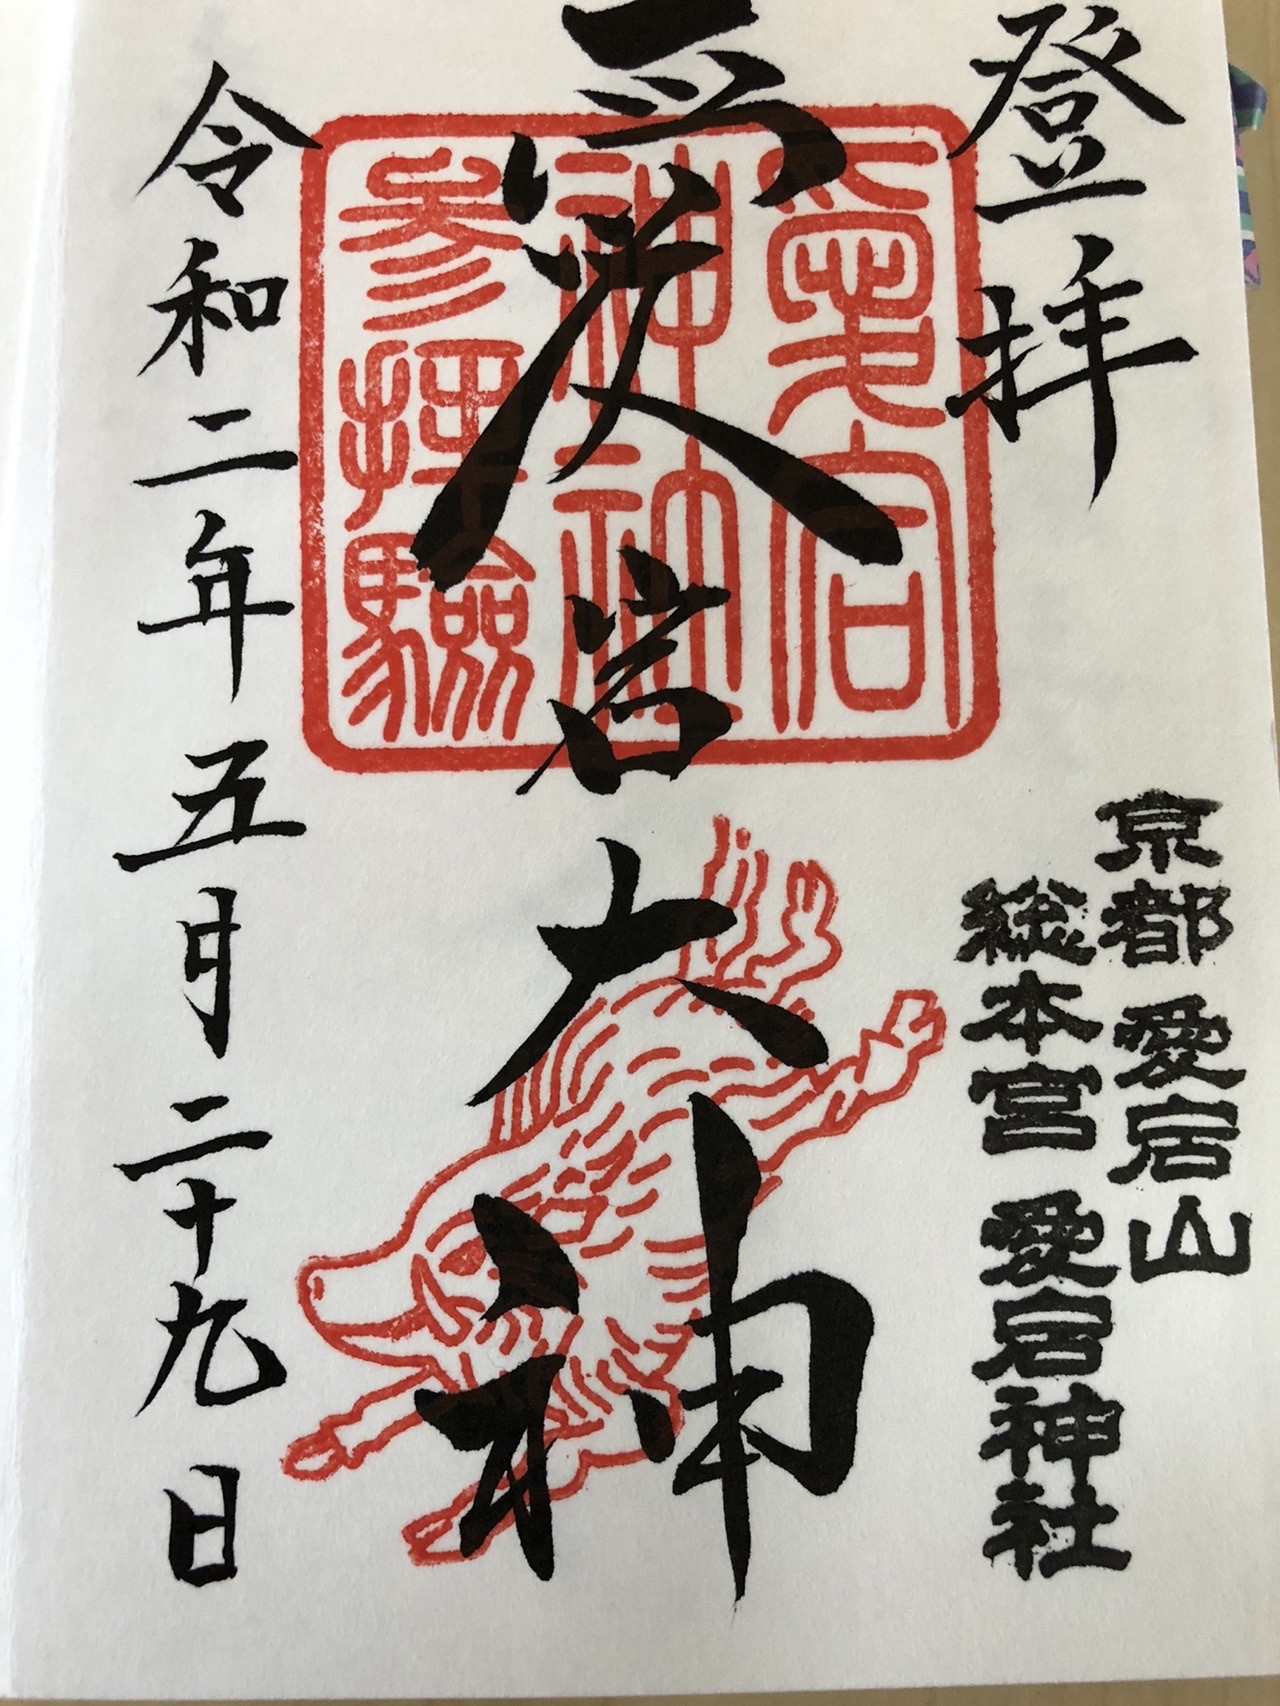 登拝
京都 愛宕山
総本宮 愛宕神社
愛宕大神
愛宕
神社
参拝験
令和二年五月二十九日